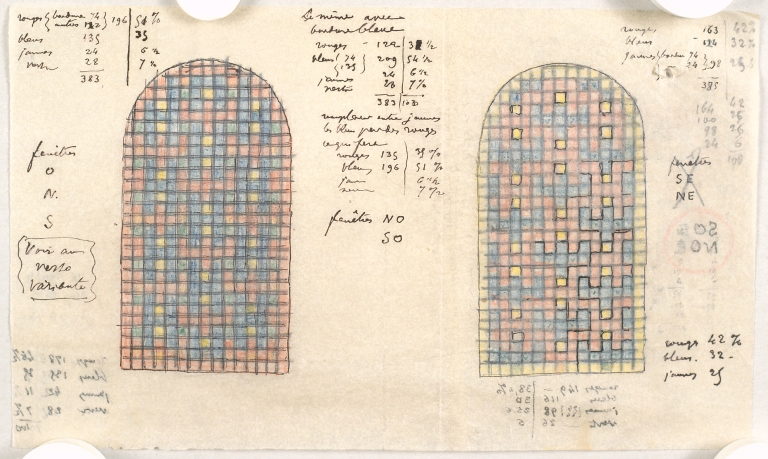 rouges { bordure 74 } 196 51 %
autres 122
bleus 135 35
jaunes 24 6 ½
verts 28 7 ½
383
fenêtres
O
N.
S
Voir au
verso
variante
Le même avec
bordure bleue
rouges - 122 31 ½
bleus { 74 } 209 54 ½
{ 135 }
jaunes 24 6 ½
verts 28 7 %
383 100
remplacer entre jaunes
les bleus par des rouges
ce qui fera
rouges 135 35 %
bleus 196 51 %
jau 6 ½
7 ½
fenêtres NO
SO
rouges 163 42%
bleus - 124 32%
jaunes { bordure 74 25
24 98
385
164 42
100 26
98 26
24 6
100
fenêtres
SE
NE
SO
NO
rouges 42 %
bleus. 32 -
jaunes 25
rouges 178 46%
bleus 135 35
jaunes 42 11
verts 28 7 %
100
rouges 149 - 38,0%
bleus 116 30
jaunes 98 25
verts 26 6